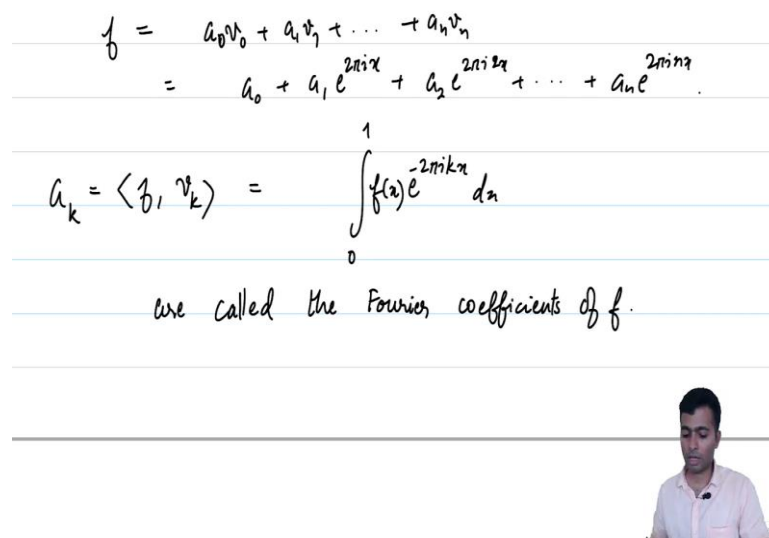 f = a₀v₀ + a₁v₁ + ... + aₙvₙ
= a₀ + a₁e^{2πix} + a₂e^{2πi2x} + ... + aₙe^{2πinx}.
a_k = ⟨f, v_k⟩ = ∫₀¹ f(x) e^{-2πikx} dx
are called the Fourier coefficients of f.